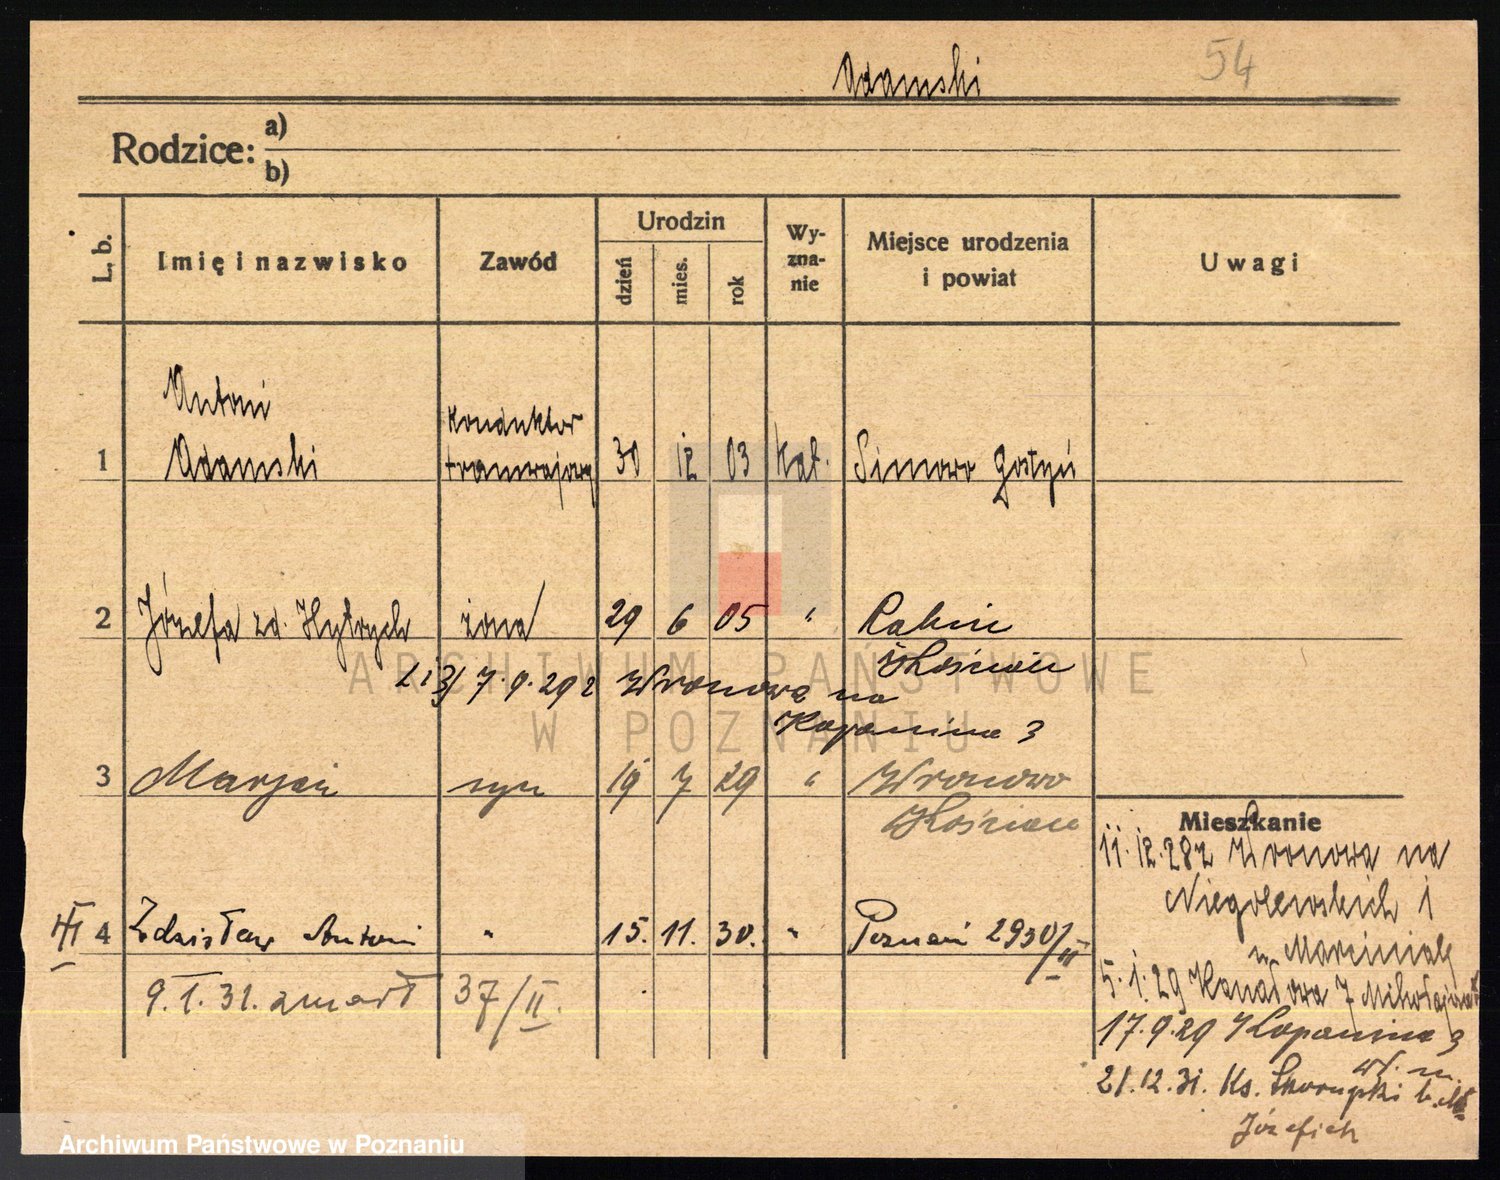 54
Adamski
Rodzice: a)
b)
L. b.
Imię i nazwisko
Zawód
Urodzin
dzień
mies.
rok
Wy-
zna-
nie
Miejsce urodzenia
i powiat
Uwagi
Antoni
konduktor
1 Adamski tramwajowy 30 12 03 kat. Simowo Gostyń
2 Józefa zd. Hytrych żona 29 6 05 " Rabin
Kościan
7.9.29 z Wronowa na
Kopanina 3
3 Marjan syn 19 7 29 " Wronowo
Kościan
Mieszkanie
11.12.28 z Wronowa na
Niegolewskich 1
u Marciniak
III 4 Zdzisław Antoni " 15. 11. 30. " Poznań 2930/II
9.I.31. zmarł 37/II.
5.1.29 Kanałowa 7
17.9.29 Kopanina 3
21.12.31. Ks. Skorupki
Józefiak
ARCHIWUM PAŃSTWOWE
W POZNANIU
Archiwum Państwowe w Poznaniu